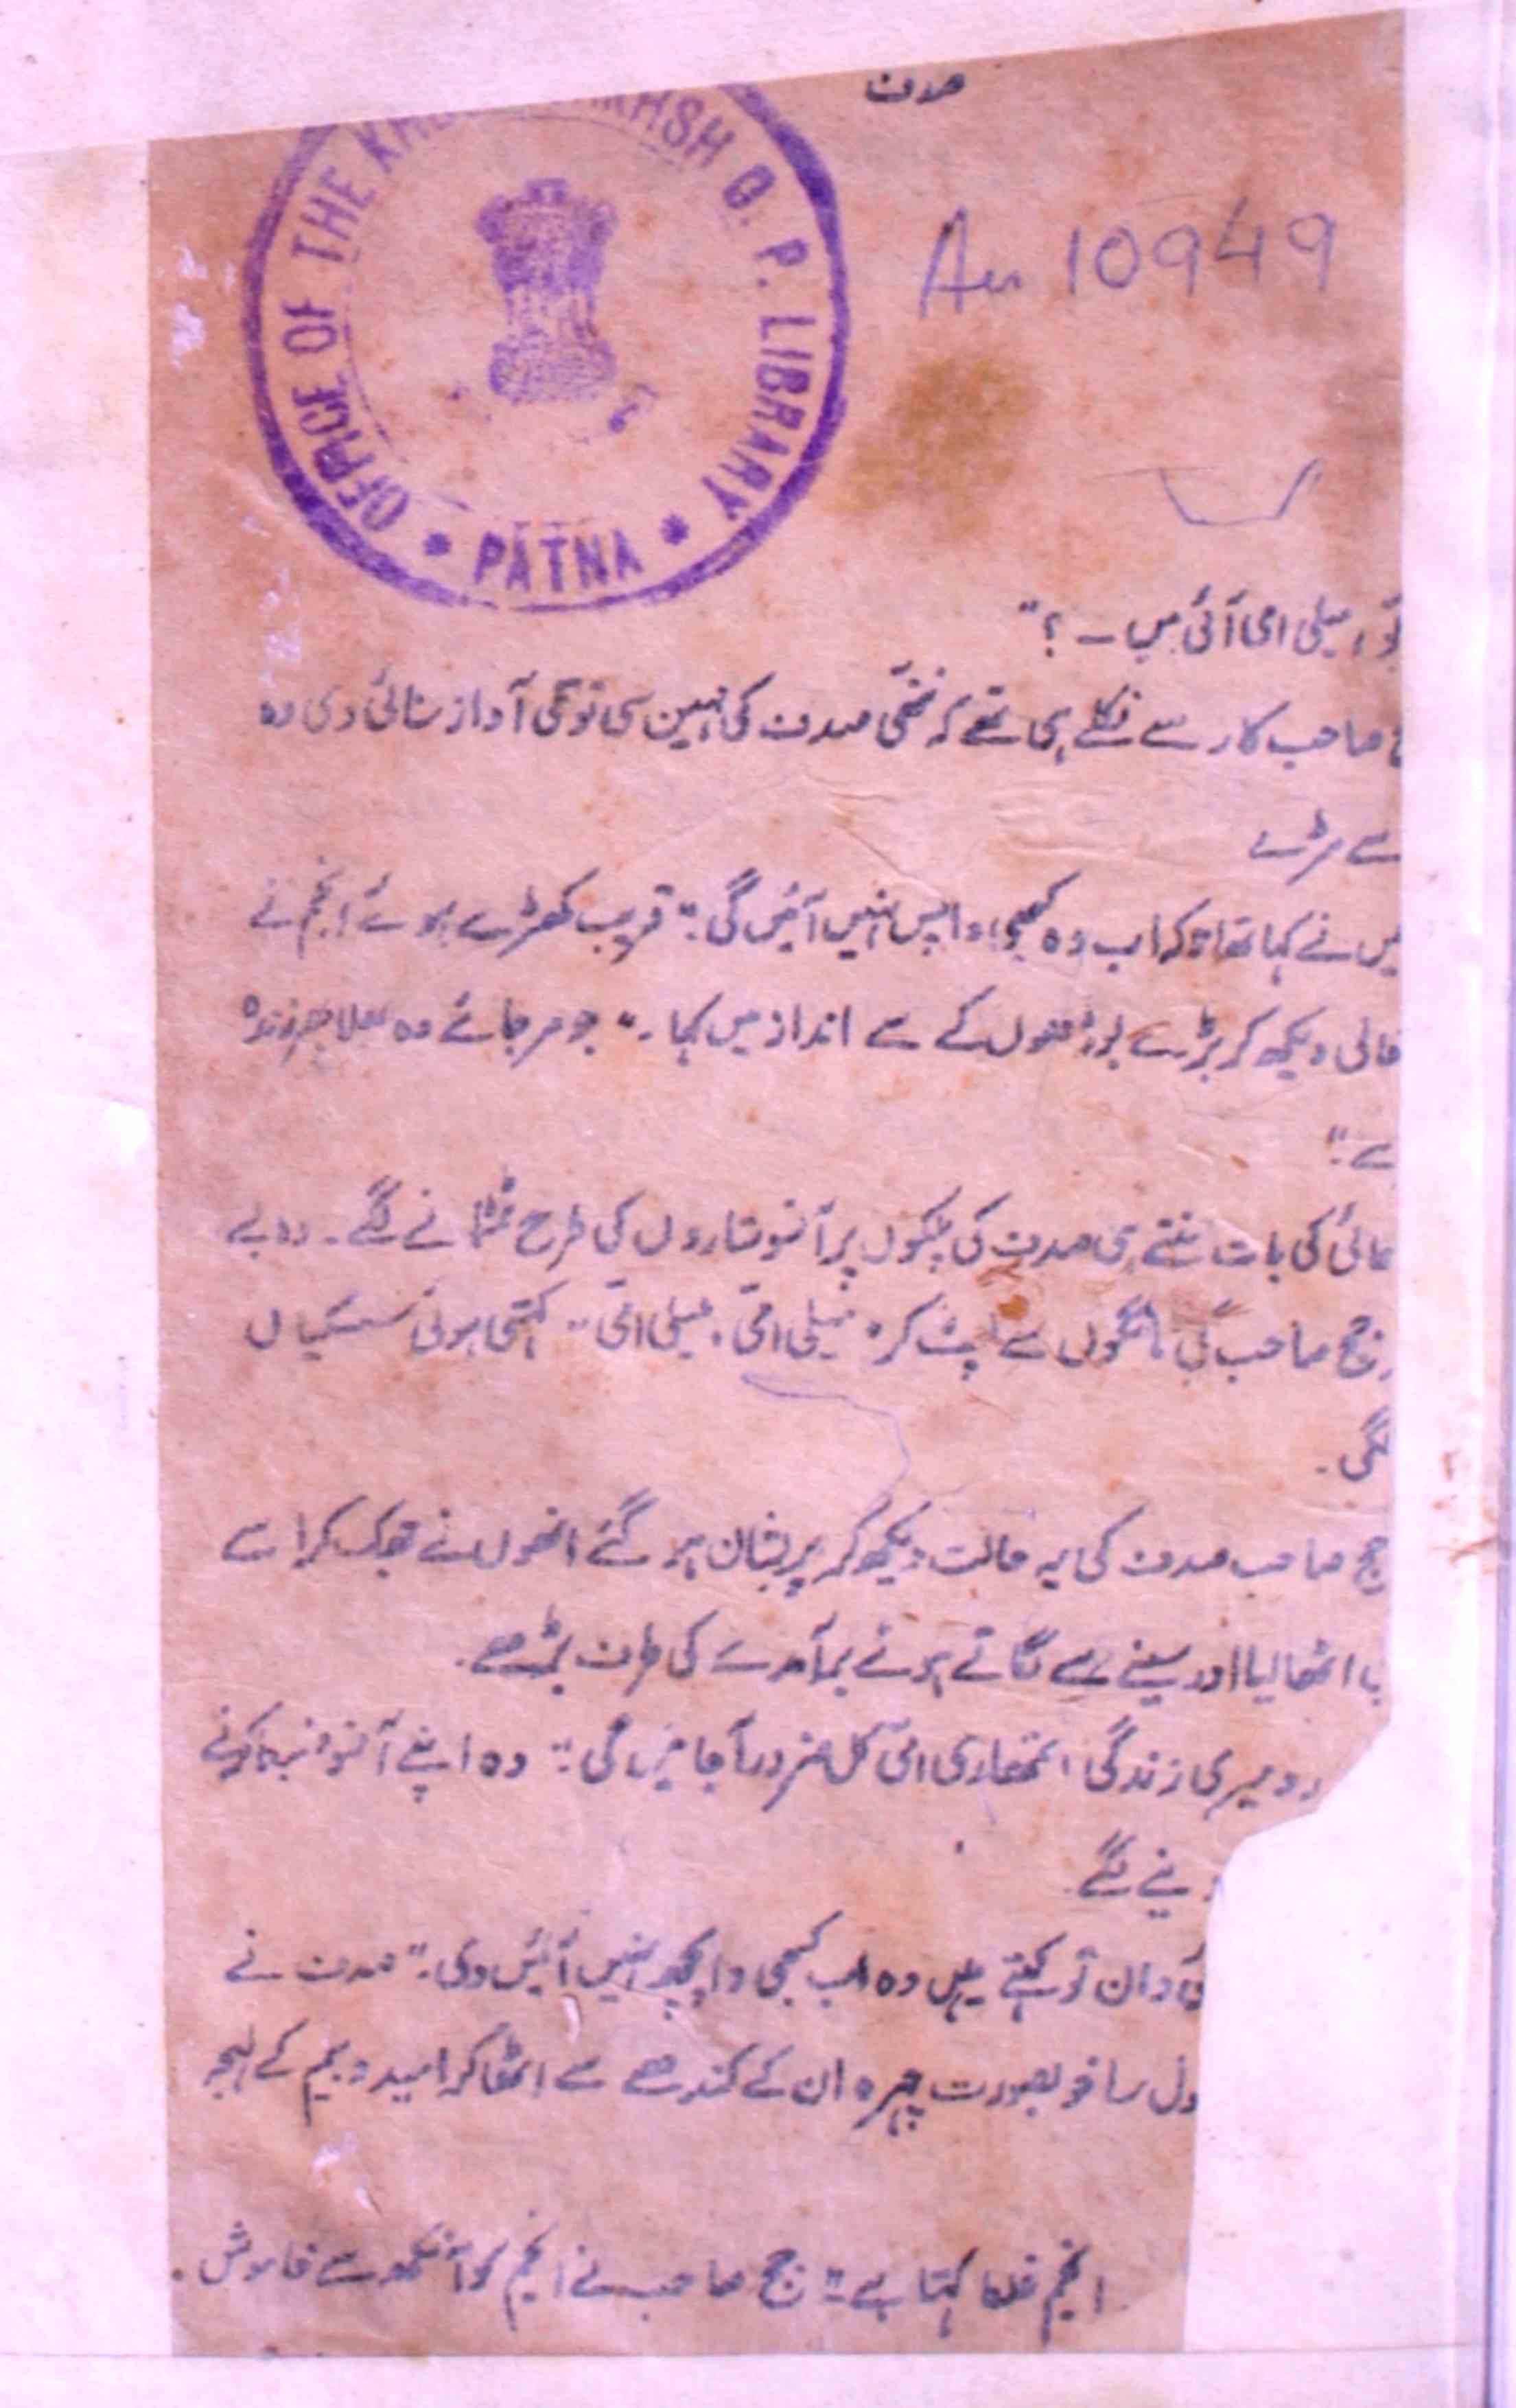 صدف
OFFICE OF THE KHU AKHSH O. P. LIBRARY
* PATNA *
Au 10949
میلی امی آئی ہیں — ؟"
صاحب کار سے نکلے ہی تھے کہ ننھی صدف کی مہین سی توتلی آواز سنائی دی وہ
سے مڑے
میں نے کہا تھا نا کہ اب وہ کبھی واپس نہیں آئیں گی:" قریب کھڑے ہوئے انجم نے
خالی دیکھ کر بڑے بوڑھوں کے سے انداز میں کہا ۔" جو مر جائے وہ بھلا پھر زندہ
ہے:"
بھائی کی بات سنتے ہی صدف کی پلکوں پر آنسو ستاروں کی طرح ٹمٹمانے لگے ۔ وہ بے
جج صاحب کی ٹانگوں سے لپٹ کر " میلی امی ، میلی امی " کہتی ہوئی سسکیاں
لگی ۔
جج صاحب صدف کی یہ حالت دیکھ کر پریشان ہو گئے انھوں نے جھک کر اسے
اٹھا لیا اور سینے سے لگاتے ہوئے برآمدے کی طرف بڑھے ۔
رو میری زندگی تمھاری امی کل ضرور آ جائیں گی:" وہ اپنے آنسو ضبط کرنے
دینے لگے
دان تو کہتے ہیں وہ اب کبھی واپچھ نہیں آئیں دی:" صدف نے
ول سا خوبصورت چہرہ ان کے کندھے سے اٹھا کر امید و بیم کے لہجہ
انجم غلط کہتا ہے:" جج صاحب نے انجم کو آنکھ سے خاموش ۔